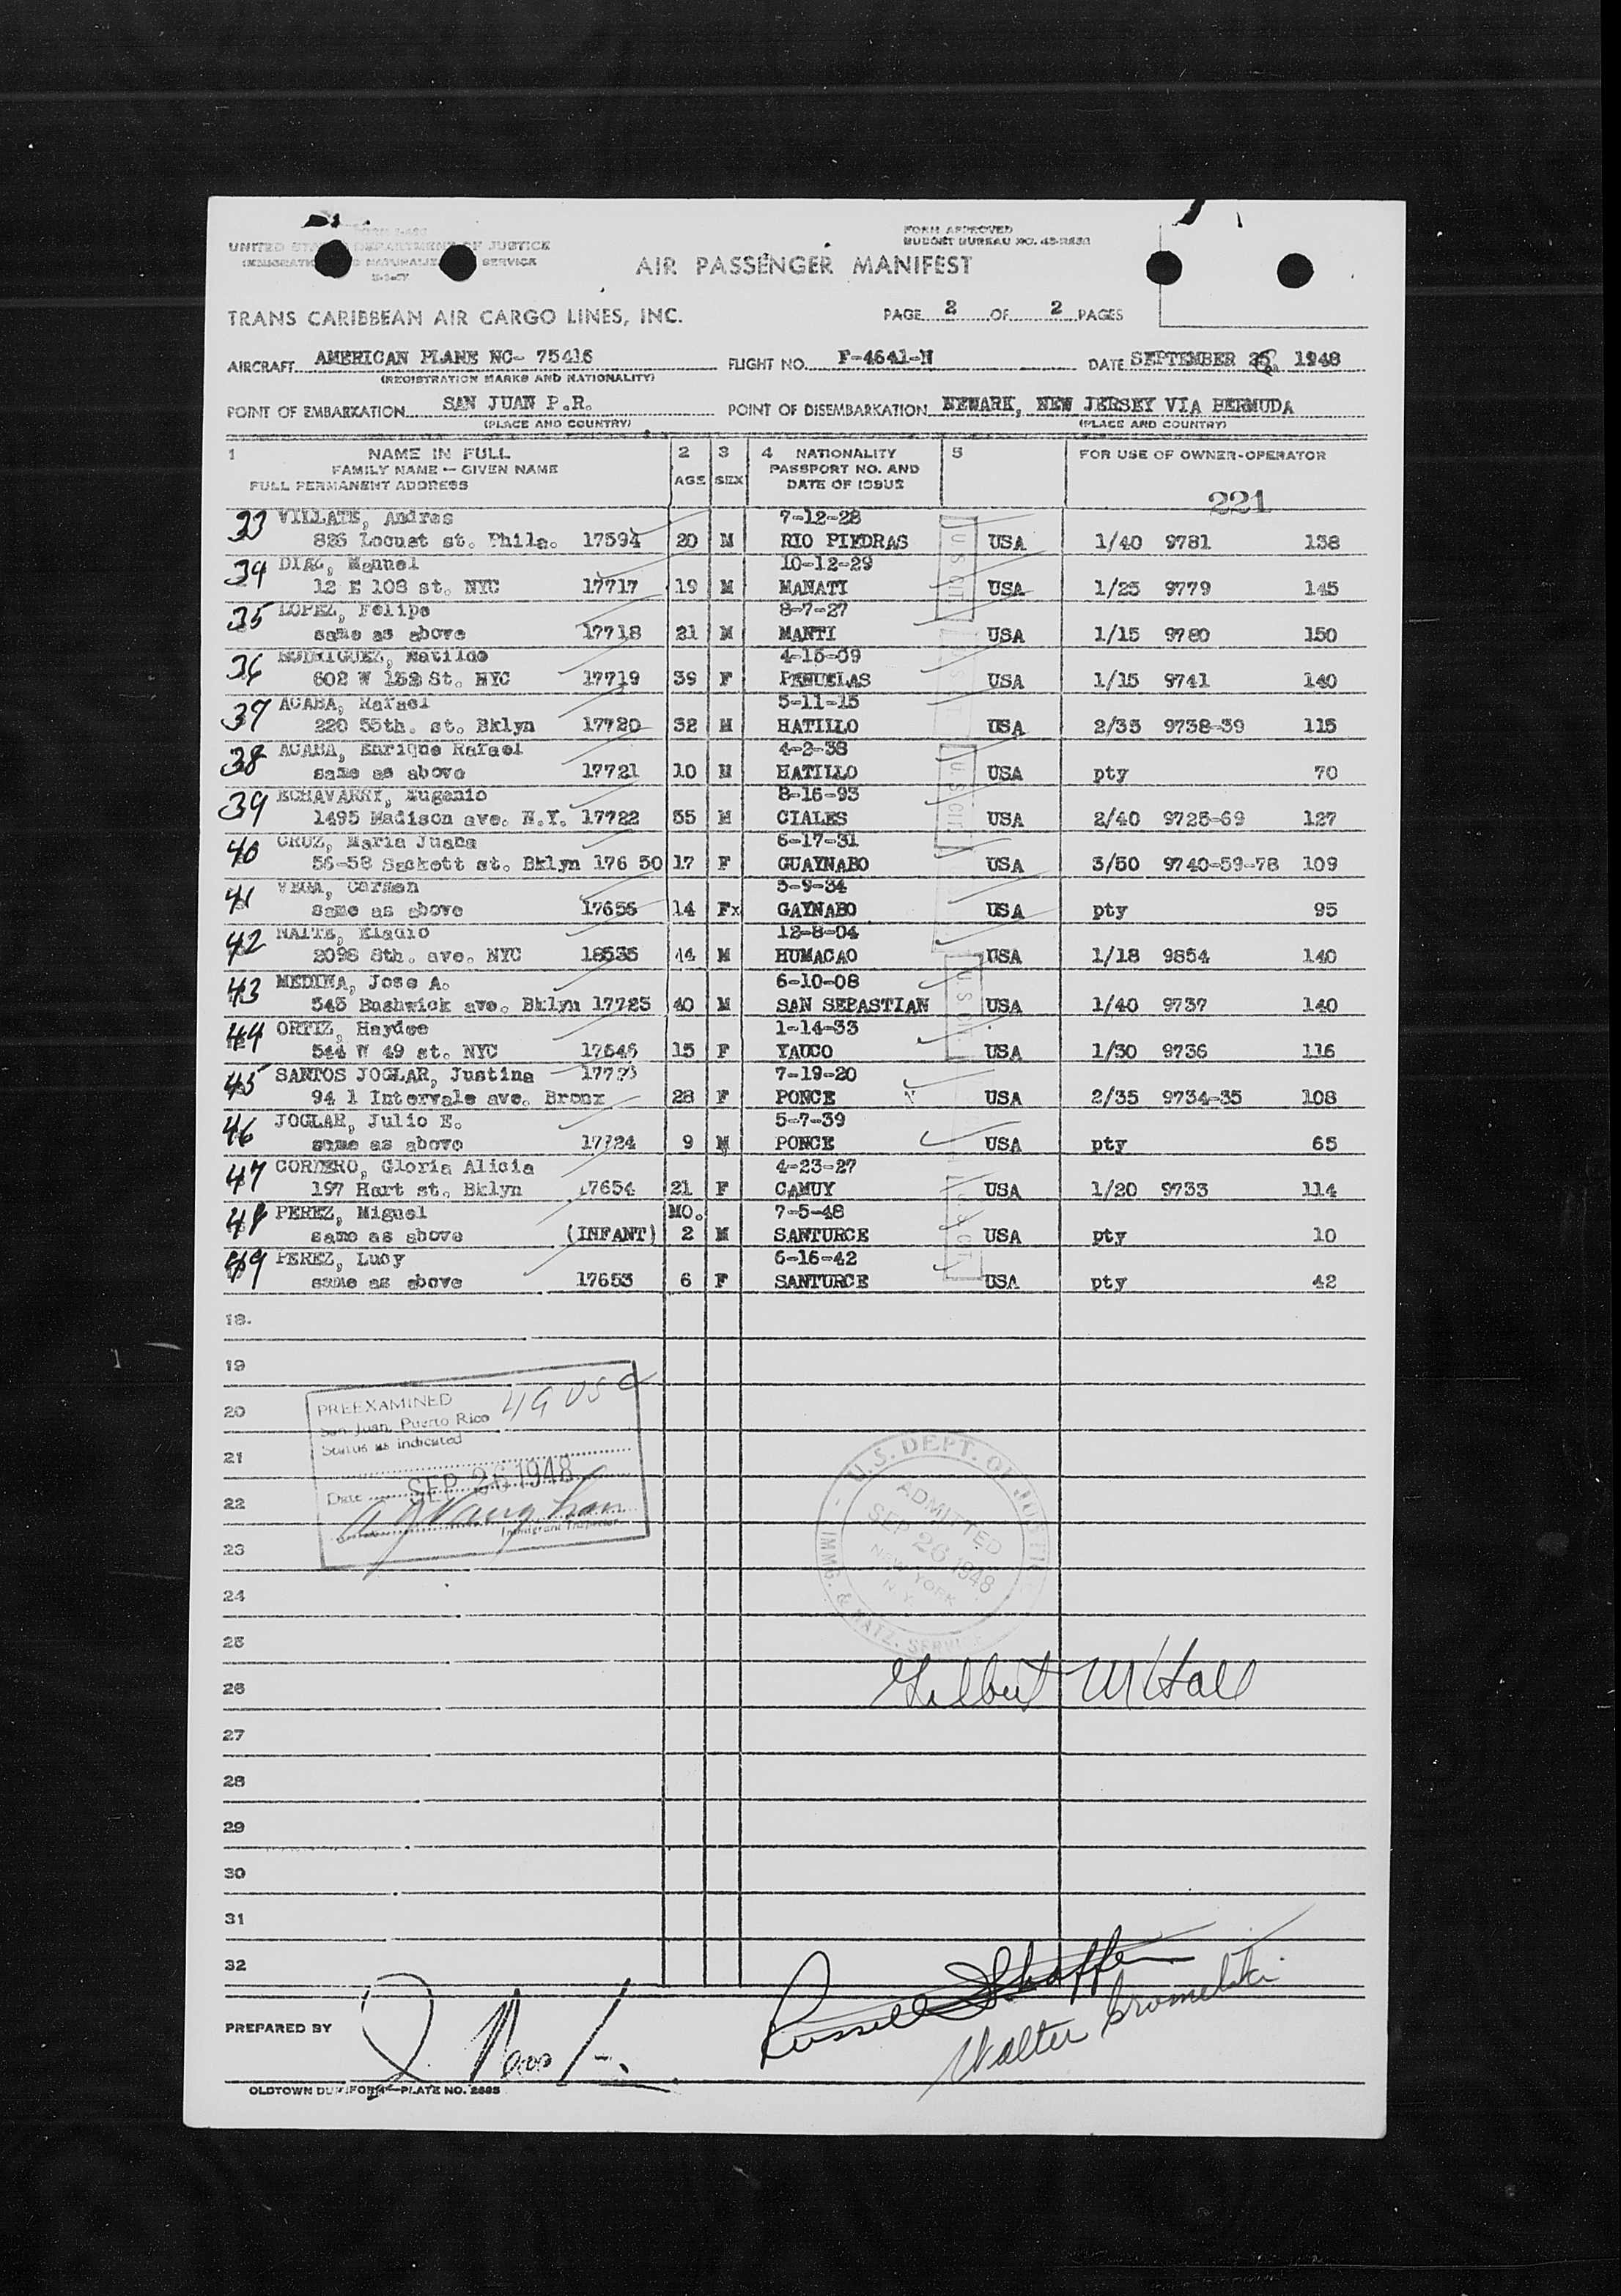 UNITED STATES DEPARTMENT OF JUSTICE
IMMIGRATION AND NATURALIZATION SERVICE
FORM APPROVED
BUDGET BUREAU NO.
AIR PASSENGER MANIFEST
TRANS CARIBBEAN AIR CARGO LINES, INC.
PAGE 2 OF 2 PAGES
AIRCRAFT AMERICAN PLANE NC- 75416 FLIGHT NO. F-4641-N DATE SEPTEMBER 1948
(REGISTRATION MARKS AND NATIONALITY)
POINT OF EMBARKATION SAN JUAN P.R. POINT OF DISEMBARKATION NEWARK, NEW JERSEY VIA BERMUDA
(PLACE AND COUNTRY) (PLACE AND COUNTRY)
1 NAME IN FULL 2 3 4 NATIONALITY 5 FOR USE OF OWNER-OPERATOR
FAMILY NAME — GIVEN NAME PASSPORT NO. AND
FULL PERMANENT ADDRESS AGE SEX DATE OF ISSUE
221
33 VILLATE, Andres 7-12-28
825 Locust st. Phila. 17594 20 M RIO PIEDRAS USA 1/40 9781 138
34 DIAZ, Manuel 10-12-29
12 E 108 st. NYC 17717 19 M MANATI USA 1/25 9779 145
35 LOPEZ, Felipe 8-7-27
same as above 17718 21 M MANTI USA 1/15 9780 150
36 RODRIGUEZ, Matilde 4-15-09
602 W 152 St. NYC 17719 39 F PENUELAS USA 1/15 9741 140
37 ACABA, Rafael 5-11-15
220 55th. st. Bklyn 17720 32 M HATILLO USA 2/35 9738-39 115
38 ACABA, Enrique Rafael 4-2-38
same as above 17721 10 M HATILLO USA pty 70
39 ECHAVARRY, Eugenio 8-16-93
1495 Madison ave. N.Y. 17722 55 M CIALES USA 2/40 9725-69 127
40 CRUZ, Maria Juana 6-17-31
56-58 Sackett st. Bklyn 176 50 17 F GUAYNABO USA 3/50 9740-59-78 109
41 VEGA, Carmen 3-9-34
same as above 17656 14 Fx GAYNABO USA pty 95
42 Eladio 12-8-04
2098 8th. ave. NYC 18535 44 M HUMACAO USA 1/18 9854 140
43 MEDINA, Jose A. 6-10-08
545 Bushwick ave. Bklyn 17725 40 M SAN SEBASTIAN USA 1/40 9737 140
44 ORTIZ, Haydee 1-14-33
544 W 49 st. NYC 17646 15 F YAUCO USA 1/30 9736 116
45 SANTOS JOGLAR, Justina 17723 7-19-20
94 1 Intervale ave. Bronx 28 F PONCE USA 2/35 9734-35 108
46 JOGLAR, Julio E. 5-7-39
same as above 17724 9 M PONCE USA pty 65
47 CORDERO, Gloria Alicia 4-23-27
197 Hart st. Bklyn 17654 21 F CAMUY USA 1/20 9733 114
48 PEREZ, Miguel MO. 7-5-48
same as above (INFANT) 2 M SANTURCE USA pty 10
49 PEREZ, Lucy 6-16-42
same as above 17653 6 F SANTURCE USA pty 42
18.
19
20
21
22
23
24
25
26
27
28
29
30
31
32
PREEXAMINED 49 USC
San Juan, Puerto Rico
Status as indicated
Date SEP 26 1948
Immigrant Inspector
U.S. DEPT. OF JUSTICE
ADMITTED
SEP 26 1948
NEW YORK
N.Y.
IMMG. & NATZ. SERVICE
Gilbert M Hall
Russell Shaffer
Walter
PREPARED BY
OLDTOWN DUPLIFORM—PLATE NO. 2685